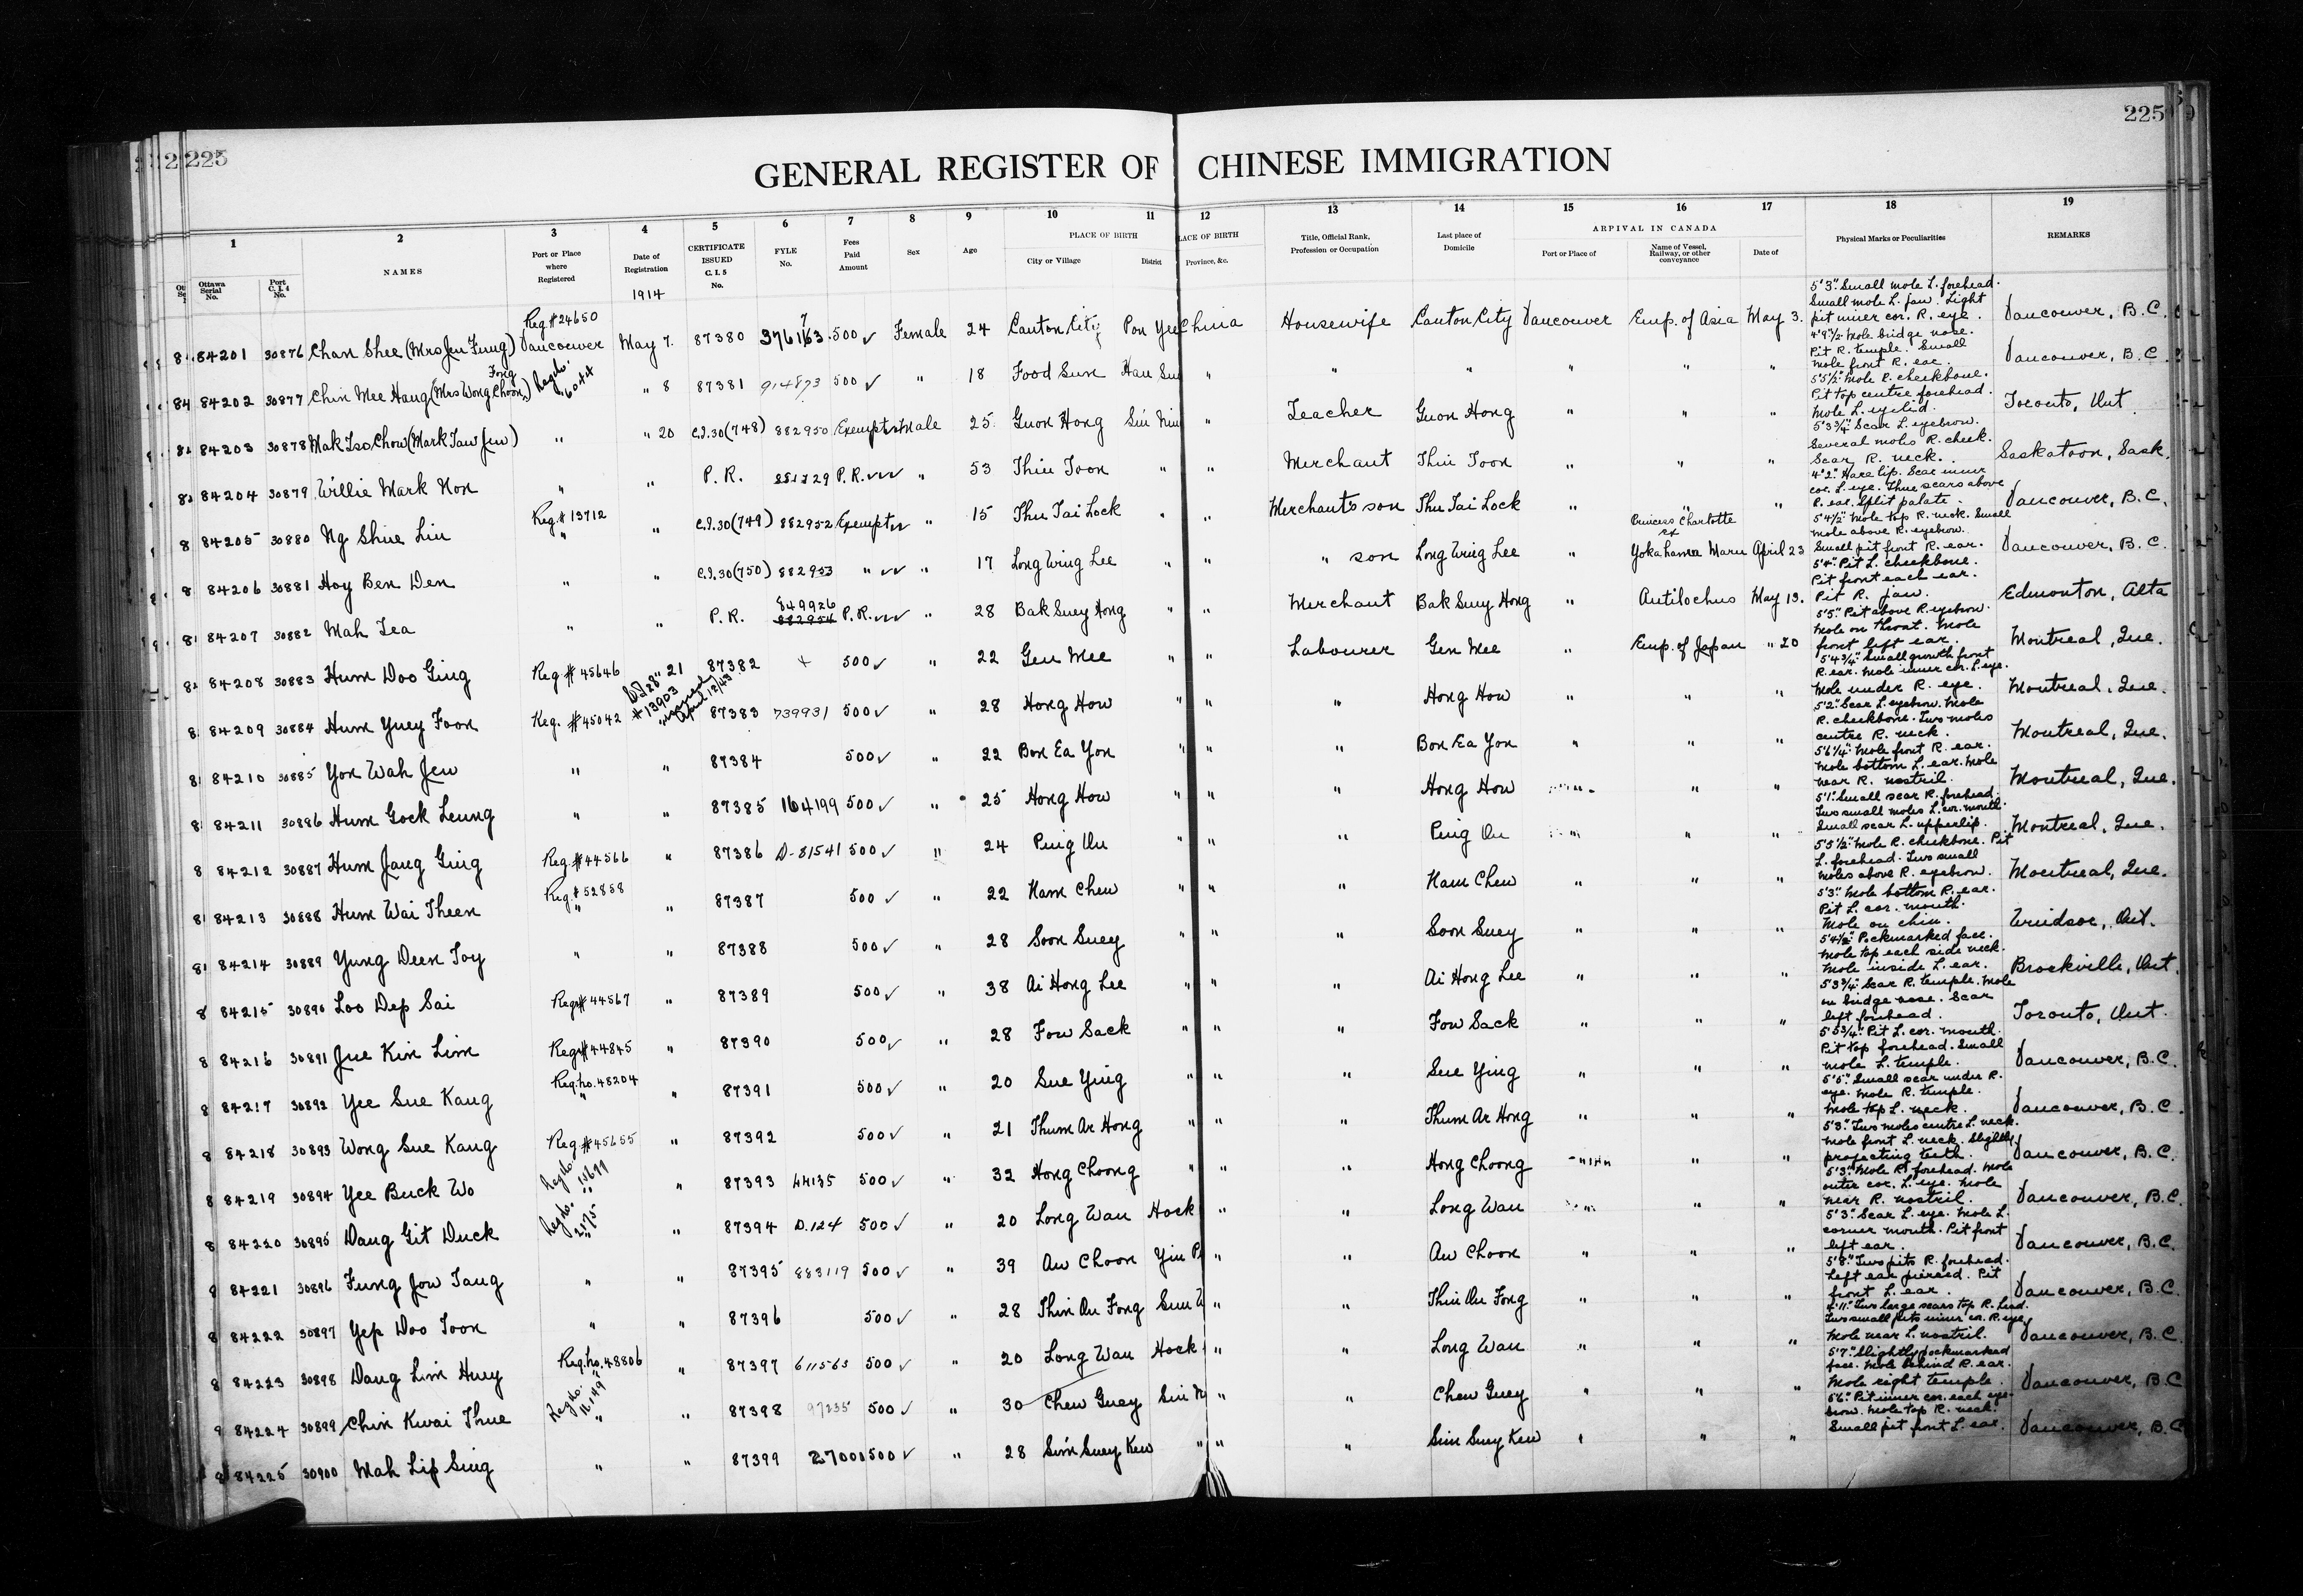 225
225
GENERAL REGISTER OF CHINESE IMMIGRATION
1 2 3 4 5 6 7 8 9 10 11 12 13 14 15 16 17 18 19
Ottawa Serial No. Port C.I.4 No. NAMES Port or Place where Registered Date of Registration CERTIFICATE ISSUED C.I.5 No. FYLE No. Fees Paid Amount Sex Age PLACE OF BIRTH City or Village District PLACE OF BIRTH Province, &c. Title, Official Rank, Profession or Occupation Last place of Domicile ARRIVAL IN CANADA Port or Place of Name of Vessel, Railway, or other conveyance Date of Physical Marks or Peculiarities REMARKS
1914
84201 30876 Chan Shee (Mrs Jen Fung) Reg # 24650 Vancouver May 7. 87380 376163 7 500 ✓ Female 24 Canton City Pon Yee China Housewife Canton City Vancouver Emp. of Asia May 3. 5'3". Small mole L. forehead. Small mole L. jaw. Light pit inner cor. R. eye. Vancouver, B.C.
84202 30877 Chin Mee Hang (Mrs Wong Fong Choon) Reg. No. 6044 " 8 87381 914873 500 ✓ " 18 Food Sum " " " " " " 4'9½" Mole bridge nose. Pit R. temple. Small mole front R. ear. Vancouver, B.C.
84203 30878 Mak Tso Chow (Mark Taw Jew) " " 20 C.I.30 (748) 882950 Exempt Male 25 Guon Hong Sin Nin " Teacher Guon Hong " " " 5'5½" Mole R. cheekbone. Pit top centre forehead. Mole L. eyelid. Toronto, Ont.
84204 30879 Willie Mark Non " " P.R. P.R. ✓✓ " 53 Thin Toon " " Merchant Thin Toon " " " 5'3¾" Scar L. eyebrow. Several moles R. cheek. Scar R. neck. Saskatoon, Sask.
84205 30880 Ng Shue Lin Reg. # 13712 " " C.I.30 (749) 882952 Exempt " 15 Thu Tai Lock " " Merchant's son Thu Tai Lock " " 4'2" Hare lip. Scar inner cor. L. eye. Three scars above R. ear. Split palate. Vancouver, B.C.
84206 30881 Hoy Ben Den " " C.I.30 (750) 882953 " ✓✓ " 17 Long Wing Lee " " " son Long Wing Lee " Princess Charlotte ex Yokahama Maru April 23 5'4½" Mole top R. neck. Small mole above R. eyebrow. Small pit front R. ear. Vancouver, B.C.
84207 30882 Mah Tea " " P.R. 849926 882954 P.R. ✓✓ " 28 Bak Suey Hong " " Merchant Bak Suey Hong " Antilochus May 19. 5'4" Pit L. cheekbone. Pit front each ear. Pit R. jaw. Edmonton, Alta
84208 30883 Hum Doo Ging Reg # 45646 " 21 87382 500 ✓ " 22 Gen Mee " " Labourer Gen Mee " Emp. of Japan " 20 5'5" Pit above R. eyebrow. Mole on throat. Mole front left ear. Montreal, Que.
84209 30884 Hum Yuey Foon Reg. # 45042 # 13903 April 12/43 87383 739931 500 ✓ " 28 Hong How " " " Hong How " " " 5'4¾" Small growth front R. ear. Mole inner cor. L. eye. Mole under R. eye. Montreal, Que.
84210 30885 Yon Wah Jew " " 87384 500 ✓ " 22 Bon Ea Yon " " " Bon Ea Yon " " " 5'2" Scar L. eyebrow. Mole R. cheekbone. Two moles centre R. neck. Montreal, Que.
84211 30886 Hum Gock Leung " " 87385 164199 500 ✓ " 25 Hong How " " " Hong How " " 5'6¼" Mole front R. ear. Mole bottom L. ear. Mole near R. nostril. Montreal, Que.
84212 30887 Hum Jang Ging Reg. # 44566 " 87386 D-81541 500 ✓ " 24 Ping On " " " Ping On " " 5'1" Small scar R. forehead. Two small moles L. cor. mouth. Small scar L. upperlip. Montreal, Que.
84213 30888 Hum Wai Theen Reg. # 52858 " " 87387 500 ✓ " 22 Nam Chew " " " Nam Chew " " " 5'5½" Mole R. cheekbone. Pit L. forehead. Two small moles above R. eyebrow. Montreal, Que.
84214 30889 Yung Deen Toy " " 87388 500 ✓ " 28 Soon Suey " " " Soon Suey " " " 5'3" Mole bottom R. ear. Pit L. cor. mouth. Mole on chin. Windsor, Ont.
84215 30890 Loo Dep Sai Reg # 44567 " 87389 500 ✓ " 38 Ai Hong Lee " " " Ai Hong Lee " " " 5'4½" Pockmarked face. Mole top each side neck. Mole inside L. ear. Brockville, Ont.
84216 30891 Jue Kim Lim Reg # 44845 " 87390 500 ✓ " 28 Fow Sack " " " Fow Sack " " " 5'3¾" Scar R. temple. Mole on bridge nose. Scar left forehead. Toronto, Ont.
84217 30892 Yee Sue Kang Reg. No. 48204 " " 87391 500 ✓ " 20 Sue Ying " " " Sue Ying " " " 5'5¾" Pit L. cor. mouth. Pit top forehead. Small mole L. temple. Vancouver, B.C.
84218 30893 Wong Sue Kang Reg. # 45655 " 87392 500 ✓ " 21 Thum Ar Hong " " " Thum Ar Hong " " " 5'5" Small scar under R. eye. Mole R. temple. Mole top L. neck. Vancouver, B.C.
84219 30894 Yee Buck Wo Reg. No. 15699 " " 87393 44135 500 ✓ " 32 Hong Choong " " " Hong Choong " " 5'3" Two moles centre L. neck. Mole front L. neck. Slightly projecting teeth. Vancouver, B.C.
84220 30895 Dang Git Duck Reg. No. 2175 " " 87394 D.124 500 ✓ " 20 Long Wan Hock " " Long Wan " " 5'3" Mole R. forehead. Mole outer cor. L. eye. Mole near R. nostril. Vancouver, B.C.
84221 30896 Fung Jow Tang " " 87395 883119 500 ✓ " 39 Aw Choon Yin P " " Aw Choon " " " 5'3" Scar L. eye. Mole L. corner mouth. Pit front left ear. Vancouver, B.C.
84222 30897 Yep Doo Toon " " 87396 500 ✓ " 28 Thin On Fong Sun W " " Thin On Fong " " " 5'8" Two pits R. forehead. Left ear pierced. Pit front L. ear. Vancouver, B.C.
84223 30898 Dang Lim Huey Reg. No. 48806 " 87397 611563 500 ✓ " 20 Long Wan Hock " " Long Wan " " " 4'11" Two large scars top R. head. Two small pits inner cor. R. eye. Mole near L. nostril. Vancouver, B.C.
84224 30899 Chin Kwai Thue Reg. No. 16149 " " 87398 97235 500 ✓ " 30 Chew Guey Sin N " " Chew Guey " " " 5'7" Slightly pockmarked face. Mole behind R. ear. Mole right temple. Vancouver, B.C.
84225 30900 Mah Lip Sing " " 87399 27001 500 ✓ " 28 Sim Suey Kew " " " Sim Suey Kew " " " 5'6" Pit inner cor. each eyebrow. Mole top R. neck. Small pit front L. ear. Vancouver, B.C.